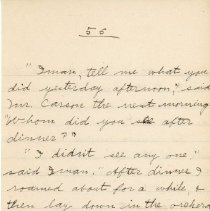 55
"Iman, tell me what you
did yesterday afternoon," said
Mr. Carson the next morning
"Whom did you see after
dinner?"
"I didn't see any one,"
said Iman. "After dinner I
roamed about for a while, &
then lay down in the orchard